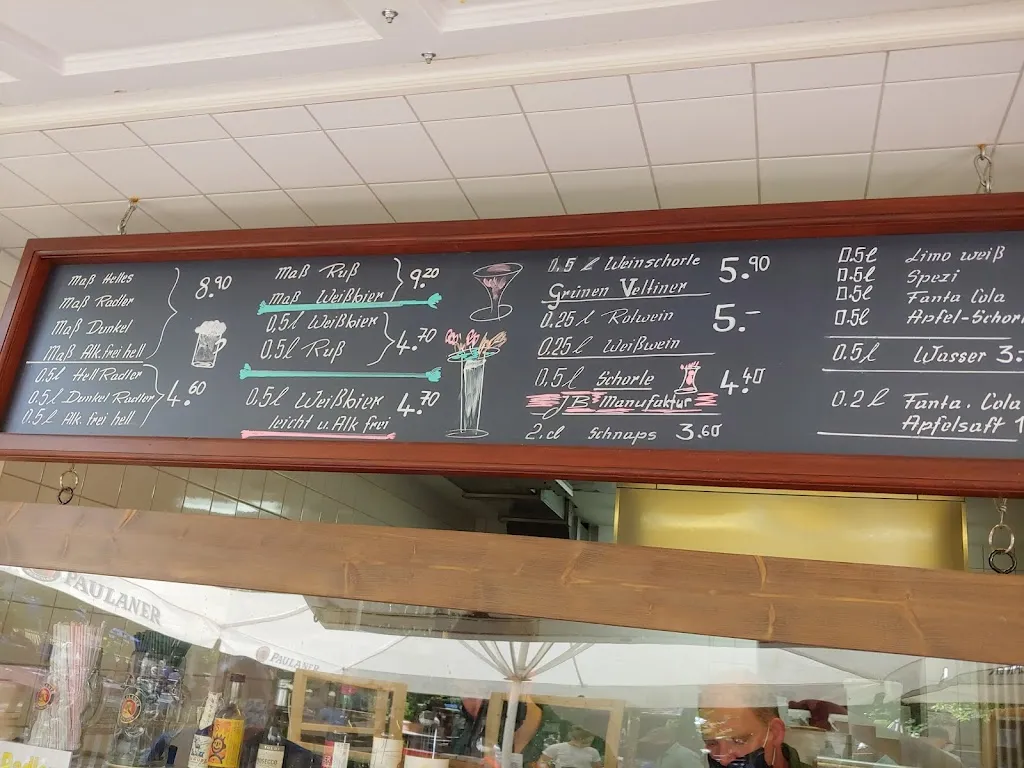 Maß Helles
Maß Radler
Maß Dunkel
Maß Alk. frei hell
8.90
0.5l Hell Radler
0.5l Dunkel Radler
0.5l Alk. frei hell
4.60
Maß Ruß
Maß Weißbier
9.20
0.5l Weißbier
0.5l Ruß
4.70
0.5l Weißbier 4.70
leicht u. Alk frei
0.5 l Weinschorle 5.90
Grünen Veltiner
0.25l Rotwein 5.-
0.25l Weißwein
0.5l Schorle 4.40
JB Manufaktur
2.cl Schnaps 3.60
0.5l Limo weiß
0.5l Spezi
0.5l Fanta Cola
0.5l Apfel-Schorl
0.5l Wasser 3.
0.2l Fanta. Cola
Apfelsaft 1
PAULANER
PAULANER